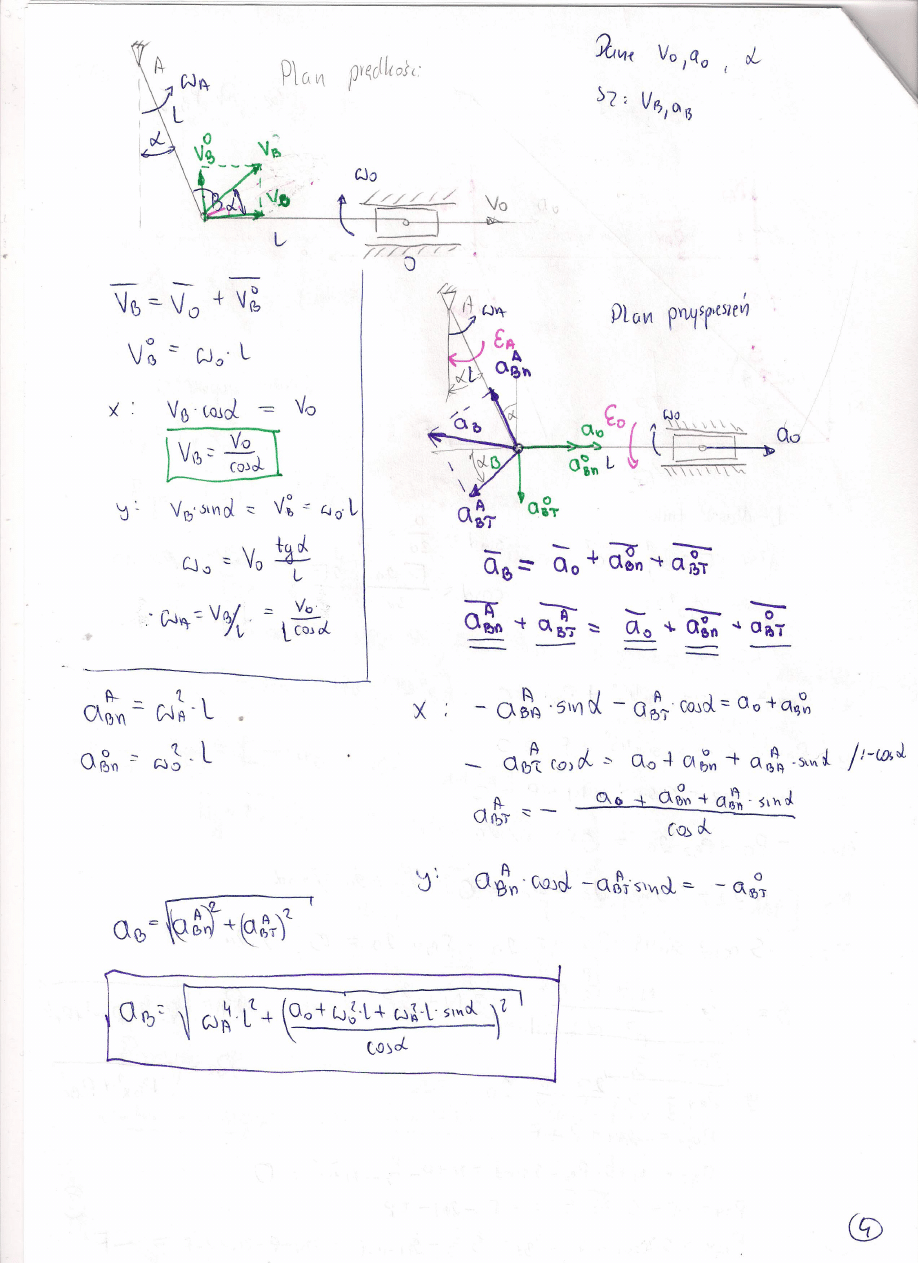 Dane V₀, a₀, α
SZ: V_B, a_B
Plan prędkości:
A
ω_A
L
α
V_B⁰
V_B
B
α
V_B
ω₀
V₀
L
O
V̅_B = V̅₀ + V̅_B⁰
V_B⁰ = ω₀·L
x: V_B·cosα = V₀
V_B = V₀/cosα
y: V_B·sinα = V_B⁰ = ω₀·L
ω₀ = V₀ tgα/L
ω_A = V_B/L = V₀/(L cosα)
Plan przyspieszeń
A
ω_A
ε_A
a_Bn^A
αL
α
a̅_B
αB
a_BT^A
a₀
a_Bn⁰
L
a_BT⁰
ε₀
ω₀
a₀
a̅_B = a̅₀ + a̅_Bn⁰ + a̅_BT⁰
a̅_Bn^A + a̅_BT^A = a̅₀ + a̅_Bn⁰ + a̅_BT⁰
a_Bn^A = ω_A²·L
a_Bn⁰ = ω₀²·L
x: - a_BA^A·sinα - a_BT^A·cosα = a₀ + a_Bn⁰
- a_BT^A cosα = a₀ + a_Bn⁰ + a_BA^A·sinα /:-cosα
a_BT^A = - (a₀ + a_Bn⁰ + a_Bn^A·sinα)/cosα
y: a_Bn^A·cosα - a_BT^A·sinα = - a_BT⁰
a_B = √((a_Bn^A)² + (a_BT^A)²)
a_B = √(ω_A⁴·L² + ((a₀ + ω₀²·L + ω_A²·L·sinα)/cosα)²)
4